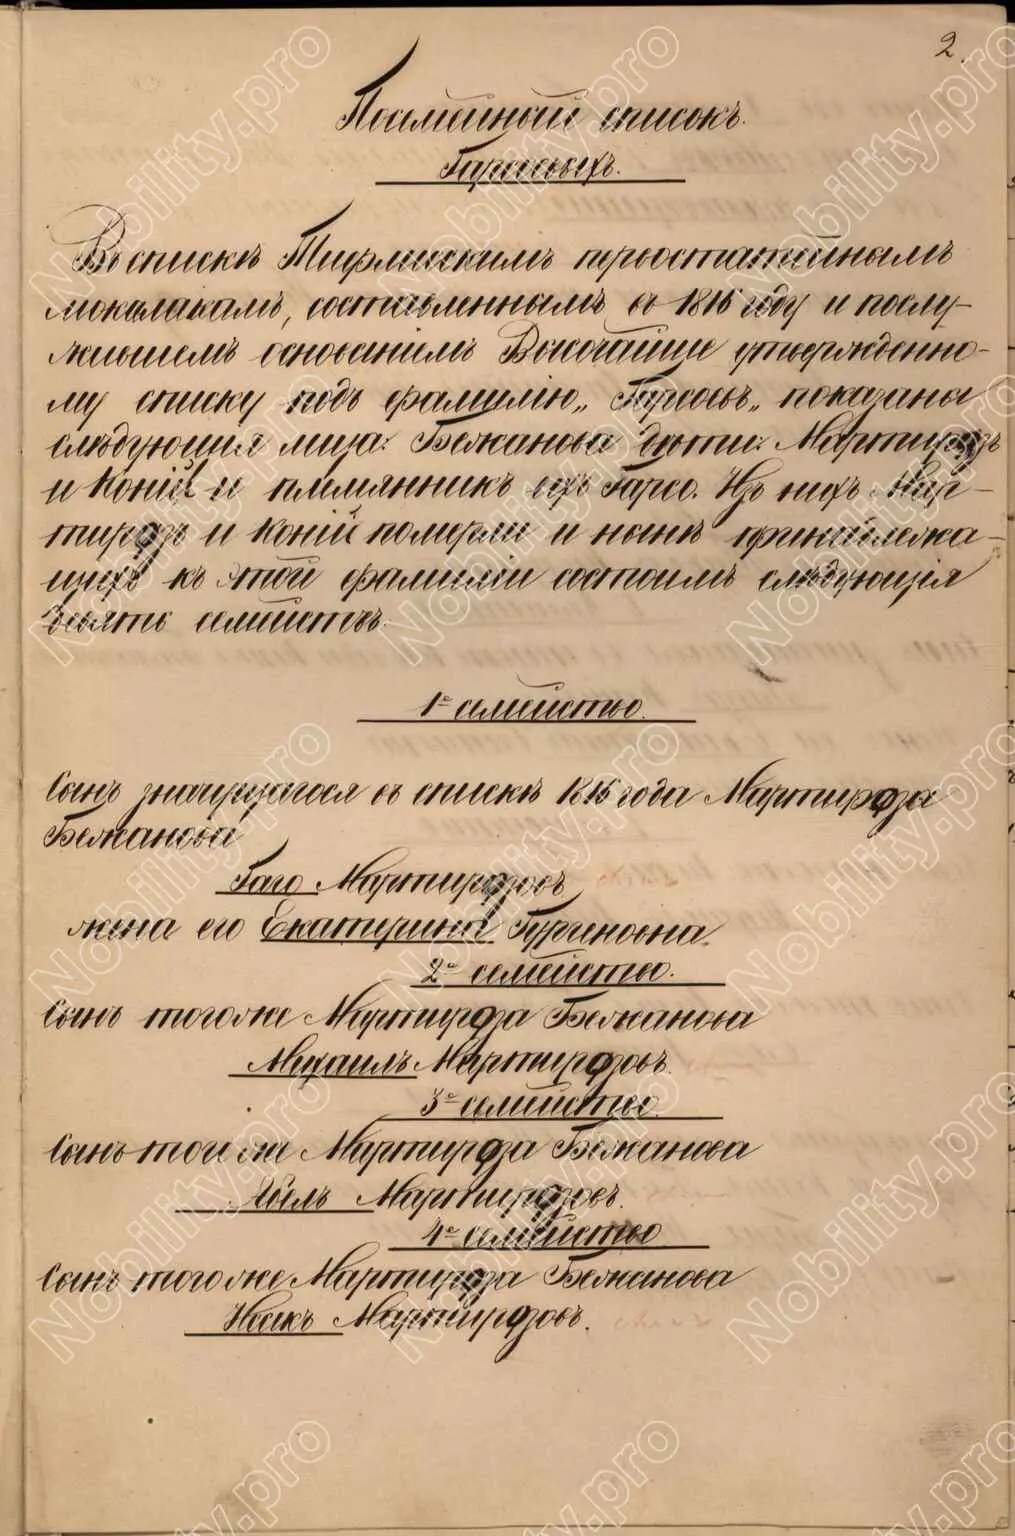 2.
Посемейный списокъ.
Гарсевыхъ.
Въ списке Тифлисскимъ первостатейнымъ
мокалакамъ, составленнымъ въ 1816 году и послу-
жившемъ основаніемъ Высочайше утвержденно-
му списку подъ фамиліею „Гарсевъ„ показаны
слѣдующія лица: Бежанова дѣти: Мартирозъ
и Коній и племянникъ ихъ Гарсо. Изъ нихъ Мар-
тирозъ и Коній померли и нынѣ принадлежа-
щихъ къ этой фамиліи состоитъ слѣдующія
девять семействъ.
1е семейство.
Сынъ значущагося въ списке 1816 года Мартироза
Бежанова
Гаго Мартирозовъ
жена его Екатерина Гургеновна.
2е семейство.
Сынъ того же Мартироза Бежанова
Михаилъ Мартирозовъ.
3е семейство.
Сынъ того же Мартироза Бежанова
Мартирозовъ.
4е семейство
Сынъ того же Мартироза Бежанова
Исакъ Мартирозовъ.
Nobility.pro